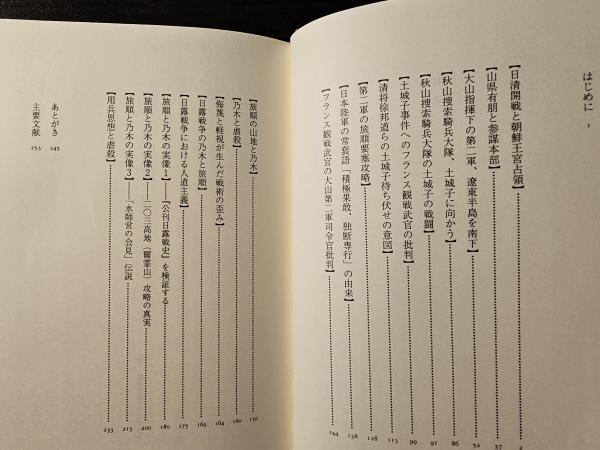 はじめに 1
【日清開戦と朝鮮王宮占領】 2
【山県有朋と参謀本部】 37
【大山指揮下の第二軍、遼東半島を南下】 52
【秋山捜索騎兵大隊、土城子に向かう】 86
【秋山捜索騎兵大隊の土城子の戦闘】 91
【土城子事件へのフランス観戦武官の批判】 99
【清将徐邦道らの土城子待ち伏せの意図】 113
【第二軍の旅順要塞攻略】 128
【日本陸軍の常套語「積極果敢、独断専行」の由来】 138
【フランス観戦武官の大山第二軍司令官批判】 144
【旅順の山地と乃木】 150
【乃木と虐殺】 160
【侮蔑と軽視が生んだ戦術の歪み】 164
【日露戦争の乃木と旅順】 169
【日露戦争における人道主義】 175
【旅順と乃木の実像1】――『公刊日露戦史』を検証する 180
【旅順と乃木の実像2】――二〇三高地（爾霊山）攻略の真実 200
【旅順と乃木の実像3】――「水師営の会見」伝説 215
【用兵思想と虐殺】 233
あとがき 245
主要文献 253